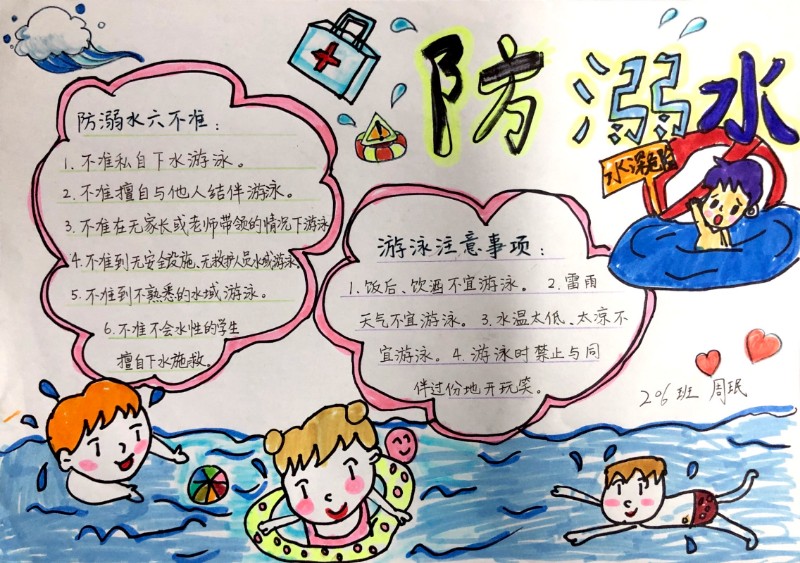 防溺水
水深危险
防溺水六不准：
1.不准私自下水游泳。
2.不准擅自与他人结伴游泳。
3.不准在无家长或老师带领的情况下游泳
4.不准到无安全设施、无救护人员水域游泳。
5.不准到不熟悉的水域游泳。
6.不准不会水性的学生
擅自下水施救。
游泳注意事项：
1.饭后、饮酒不宜游泳。 2.雷雨
天气不宜游泳。3.水温太低、太凉不
宜游泳。4.游泳时禁止与同
伴过份地开玩笑。
206班 周珉